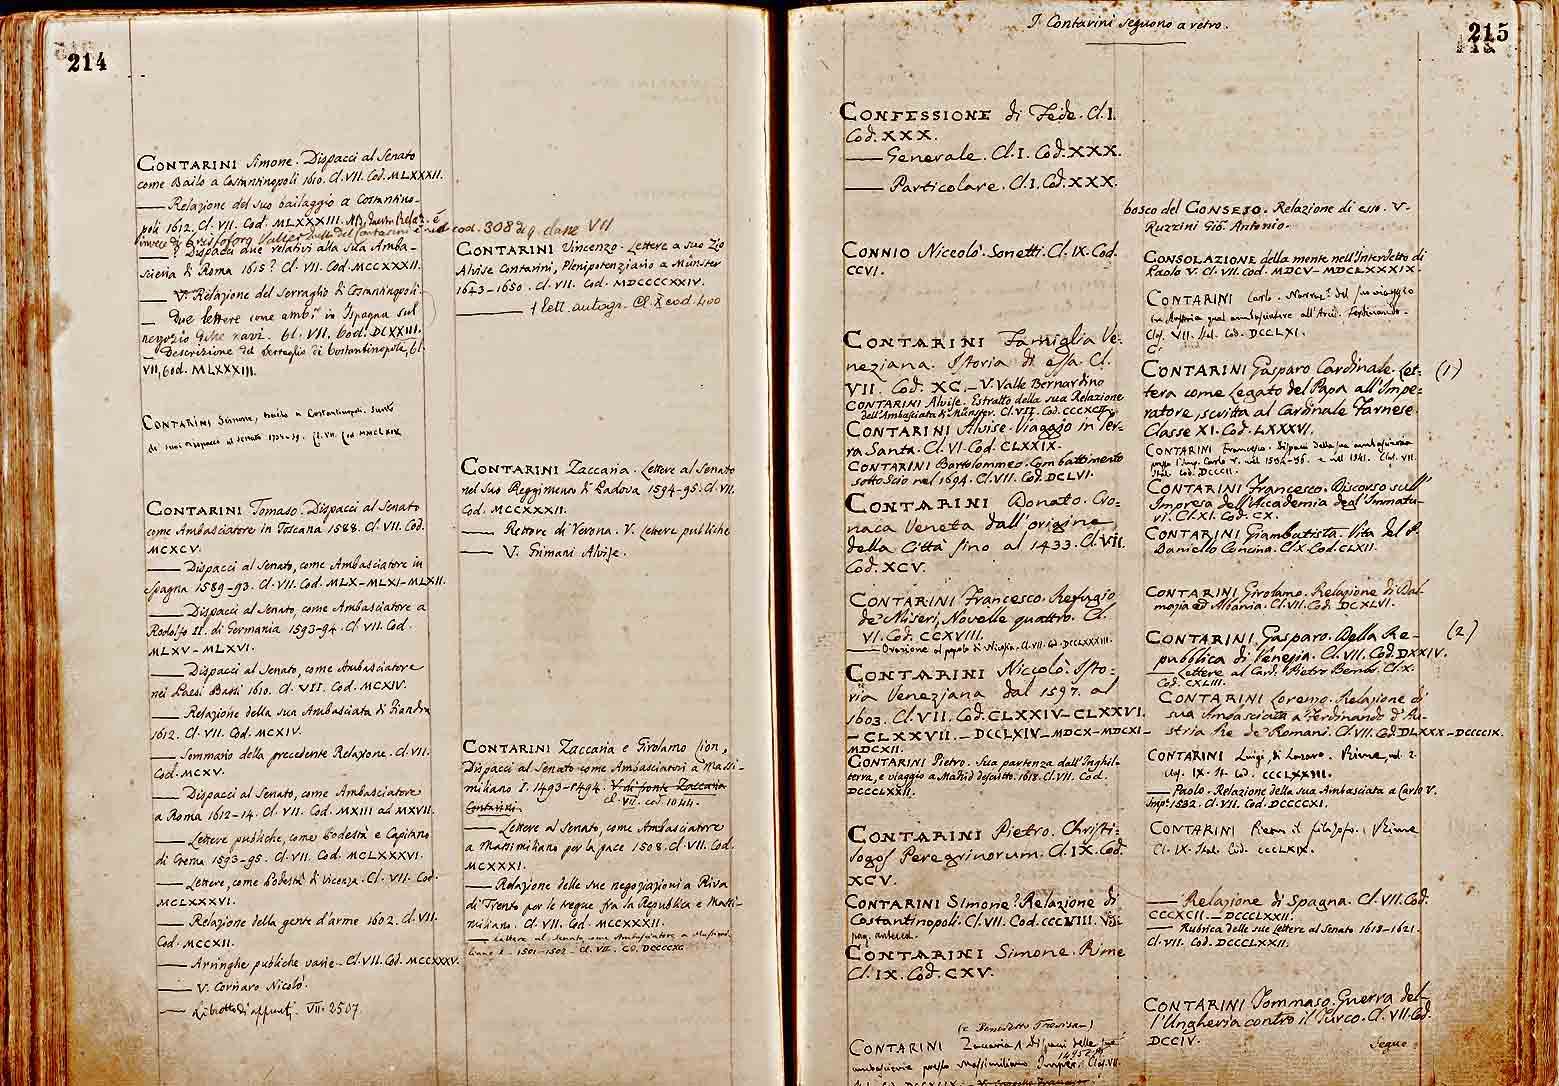 214
CONTARINI Simone. Dispacci al Senato
come Bailo a Costantinopoli 1610. Cl. VII. Cod. MLXXXII.
— Relazione del suo bailaggio a Costantino-
poli 1612. Cl. VII. Cod. MLXXXIII. NB. questa Relaz. è
invece di Cristoforo Valier
cod. 308 di q. classe VII
— ? Dispacci due relativi alla sua Amba-
sciena di Roma 1615? Cl. VII. Cod. MCCXXXII.
— V. Relazione del Serraglio di Costantinopoli.
— Due lettere come amb.r in Ispagna sul
negozio Cl. VII. Cod. DCXXIII.
— Descrizione del Serraglio di Costantinopole, Cl.
VII, Cod. MLXXXIII.
CONTARINI Simone, Bailo a Costantinopoli.
di suoi dispacci al Senato Cl. VII. Cod. MMCLXIX
CONTARINI Tomaso. Dispacci al Senato
come Ambasciatore in Toscana 1588. Cl. VII. Cod.
MCXCV.
— Dispacci al Senato, come Ambasciatore in
Spagna 1589–93. Cl. VII. Cod. MLX–MLXI–MLXII.
— Dispacci al Senato, come Ambasciatore a
Rodolfo II. di Germania 1593–94. Cl. VII. Cod.
MLXV–MLXVI.
— Dispacci al Senato, come Ambasciatore
nei Paesi Bassi 1610. Cl. VII. Cod. MCXIV.
— Relazione della sua Ambasciata di Fiandra
1612. Cl. VII. Cod. MCXIV.
— Sommario della precedente Relazione. Cl. VII.
Cod. MCXV.
— Dispacci al Senato, come Ambasciatore
a Roma 1612–14. Cl. VII. Cod. MXIII ad MXVII.
— Lettere publiche, come Podestà e Capitano
di Crema 1593–95. Cl. VII. Cod. MCLXXXVI.
— Lettere, come Podestà di Vicenza. Cl. VII. Cod.
MCLXXXVI.
— Relazione della gente d'arme 1602. Cl. VII.
Cod. MCCXII.
— Arringhe publiche varie. Cl. VII. Cod. MCCXXXV.
— V. Cornaro Nicolò.
— Libretto di appunti, VII. 2507
CONTARINI Vincenzo. Lettere a suo Zio
Alvise Contarini, Plenipotenziario a Münster
1643–1650. Cl. VII. Cod. MDCCCCXXIV.
— 1 lett. autogr. Cl. X cod. 400
CONTARINI Zaccaria. Lettere al Senato
nel suo Reggimento di Padova 1594–95. Cl. VII.
Cod. MCCXXXII.
— Rettore di Verona. V. Lettere publiche
— V. Grimani Alvise.
CONTARINI Zaccaria e Girolamo Lion,
Dispacci al Senato come Ambasciatori a Massi-
miliano I. 1493–1494. V. di fronte Zaccaria
Contarini. Cl. VII. cod. 1044.
— Lettere al Senato, come Ambasciatore
a Massimiliano per la pace 1508. Cl. VII. Cod.
MCXXXI.
— Relazione delle sue negoziazioni a Riva
di Trento per le tregue fra la Republica e Massi-
miliano. Cl. VII. Cod. MCCXXXII.
— Lettere al Senato come Ambasciatore a Massimi-
liano I. 1501–1502. Cl. VII. Co. DCCCCXC
I Contarini seguono a retro.
215
CONFESSIONE di Fede. Cl. I.
Cod. XXX.
— Generale. Cl. I. Cod. XXX.
— Particolare. Cl. I. Cod. XXX.
CONNIO Niccolò. Sonetti. Cl. IX. Cod.
CCVI.
CONTARINI Famiglia Ve-
neziana. Istoria di essa. Cl.
VII. Cod. XC. — V. Valle Bernardino
CONTARINI Alvise. Estratto della sua Relazione
dell'Ambasciata di Münster. Cl. VII. Cod. CCCXCII.
CONTARINI Alvise. Viaggio in Ter-
ra Santa. Cl. VI. Cod. CLXXIX.
CONTARINI Bartolommeo. Combattimento
sotto Scio nel 1694. Cl. VII. Cod. DCLVI.
CONTARINI Donato. Cro-
naca Veneta dall'origine
della Città fino al 1433. Cl. VII.
Cod. XCV.
CONTARINI Francesco. Refugio
de' Miseri, Novelle quattro. Cl.
VI. Cod. CCXVIII.
— Orazione al popolo di Cl. VII. Cod. DCCLXXXIII.
CONTARINI Niccolò. Isto-
ria Veneziana dal 1597. al
1603. Cl. VII. Cod. CLXXIV–CLXXVI.
– CLXXVII. – DCCLXIV – MDCX – MDCXI –
MDCXII.
CONTARINI Pietro. Sua partenza dall'Inghil-
terra, e viaggio a Madrid descritto. 1618. Cl. VII. Cod.
DCCCLXXII.
CONTARINI Pietro. Christi-
logos Peregrinorum. Cl. IX. Cod.
XCV.
CONTARINI Simone? Relazione di
Costantinopoli. Cl. VII. Cod. CCCVIII. V.
pag. anteced.
CONTARINI Simone. Rime
Cl. IX. Cod. CXV.
(e Benedetto Trevisan)
CONTARINI Zaccaria Dispacci delle sue
ambascierie presso Massimiliano Imper. Clas. VII.
bosco del CONSEJO. Relazione di esso. V.
Ruzzini Gio. Antonio.
CONSOLAZIONE della mente nell'Interdetto di
Paolo V. Cl. VII. cod. MDCV – MDCLXXXIX.
CONTARINI Carlo. Narraz.e del suo viaggio
in Austria qual ambasciatore all'Arcid. Ferdinando.
Clas. VII. Ital. Cod. DCCLXI.
C.
CONTARINI Gasparo Cardinale. Let- (1)
tera come Legato del Papa all'Impe-
ratore, scritta al Cardinale Farnese.
Classe XI. Cod. LXXXVI.
CONTARINI Francesco. Dispacci della sua ambascieria
presso l'Imp. Carlo V. nel 1534–36. e nel 1541. Clas. VII.
Ital. Cod. DCCCII.
CONTARINI Francesco. Discorso sull'
Impresa dell'Accademia degl'Immatu-
ri. Cl. XI. Cod. CX.
CONTARINI Giambattista. Vita del P.
Daniello Concina. Cl. X. Cod. CLXII.
CONTARINI Girolamo. Relazione di Dal-
mazia ed Albania. Cl. VII. Cod. DCXLVI.
CONTARINI Gasparo. Della Re- (2)
pubblica di Venezia. Cl. VII. Cod. DXXIV.
— Lettere al Card. Pietro Bembo. Cl. X.
Cod. CXLIII.
CONTARINI Lorenzo. Relazione di
sua Ambasciata a Ferdinando d'Au-
stria Re de' Romani. Cl. VII. Cod. DLXXX – DCCCCIX.
CONTARINI Luigi, di Lazaro. Rime, vol. 2.
Clas. IX. It. Cod. CCCLXXIII.
— Paolo. Relazione della sua Ambasciata a Carlo V.
Imp.e 1532. Cl. VII. Cod. DCCCCXI.
CONTARINI Pietro il filosofo. Rime
Cl. IX. Ital. Cod. CCCLXIX.
— Relazione di Spagna. Cl. VII. Cod.
CCCXCII. – DCCCLXXII.
— Rubrica delle sue Lettere al Senato 1618–1621.
Cl. VII. Cod. DCCCLXXII.
CONTARINI Tommaso. Guerra del-
l'Ungheria contro il Turco. Cl. VII. Cod.
DCCIV.
Segue